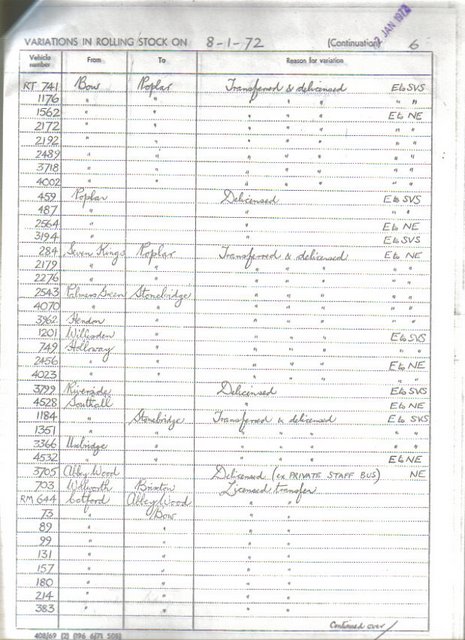 JAN 1972
VARIATIONS IN ROLLING STOCK ON 8-1-72 (Continuation) 6
Vehicle number From To Reason for variation
RT 741 Bow Poplar Transferred & delicensed E to SVS
1176 " " " " " " "
1562 " " " " " E to NE
2172 " " " " " " "
2192 " " " " " " "
2489 " " " " " " "
3718 " " " " " " "
4002 " " " " " " "
459 Poplar Delicensed E to SVS
487 " " " "
2564 " " E to NE
3194 " " E to SVS
284 Seven Kings Poplar Transferred & delicensed E to NE
2179 " " " " " " "
2276 " " " " " " "
2543 Palmers Green Stonebridge " " " " "
4070 " " " " " " "
3962 Hendon " " " " " "
1201 Willesden " " " " E to SVS
749 Holloway " " " " " "
2456 " " " " " E to NE
4023 " " " " " " "
3799 Riverside Delicensed E to SVS
4528 Southall " E to NE
1184 " Stonebridge Transferred & delicensed E to SVS
1351 " " " " " " "
3366 Uxbridge " " " " " "
4532 " " " " " E to NE
3705 Abbey Wood Delicensed (ex PRIVATE STAFF BUS) NE
703 Brixton Licensed transfer
RM 644 Catford Abbey Wood " "
73 " Bow " "
89 " " " "
99 " " " "
131 " " " "
157 " " " "
180 " " " "
214 " " " "
383 " " " "
Continued over/
408/69